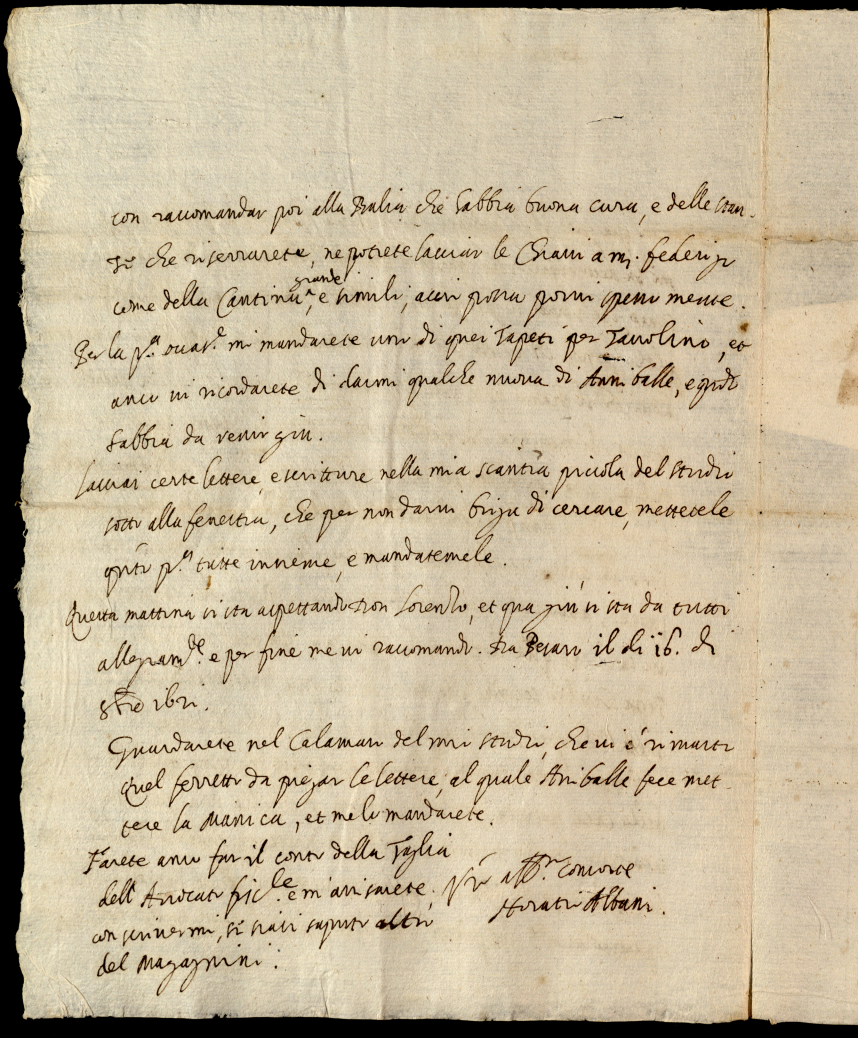 con raccomandar poi alla Balia che habbia buona cura, e delle stan-
ze che riserrarete, ne potrete lasciar le Chiavi a m. federigo
come della Cantina grande, e simili, acciò possa porvi spesso mente.
Per la p.a mi mandarete uno di quei Tapeti per Tavolino, et
anco vi ricordarete di darmi qualche nuova di Anniballe, e quando
habbia da venir giu.
Lasciai certe lettere, e scritture nella mia scantia piccola del studio
sotto alla fenestra, che per non darvi briga di cercare, mettetele
tutte insieme, e mandatemele.
Questa mattina si sta aspettando Don Lorenzo, et qua giù si sta da tutti
allegram.te e per fine me vi raccomando. Da Pesaro il di 16. di

Guardarete nel Calamaro del mio studio, che vi è rimasto
quel ferretto da piegar le lettere, al quale Aniballe fece met-
tere la Manica, et me lo mandarete.
Farete anco far il conto della Taglia
dell' Avocato fiscle e m'avisarete
con scrivermi, se s'havi saputo altro
del Magagnini.
Vro aff.mo Consorte
Horatio Albani.